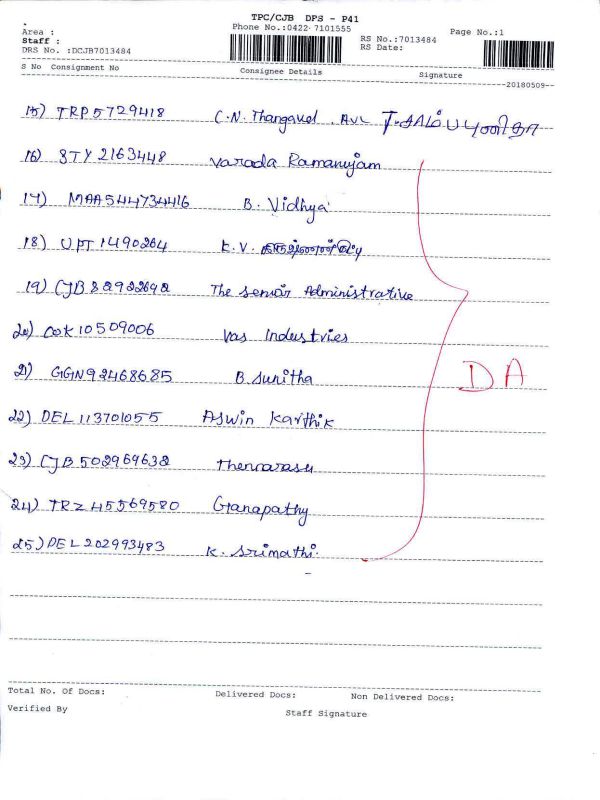 TPC/CJB DPS - P41
Area : Phone No.:0422-7101555 Page No.:1
Staff : RS No.:7013484
DRS No. :DCJB7013484 RS Date:
S No Consignment No Consignee Details Signature
20180509
15) TRP5729418 C.N. Thangavel . AVL
16) STY 2163448 Varada Ramanujam
17) MAA544734416 B. Vidhya
18) UPT1490264 K.V.
19) CJB 82922692 The senior Administrative
20) COK10509006 Vas Industries
21) GGN92468685 B. Sunitha
DA
22) DEL113701055 Aswin Karthik
23) CJB 502969632 Thennarasu
24) TRZ 45569580 Ganapathy
25) DEL202993483 K. Srimathi.
Total No. Of Docs: Delivered Docs: Non Delivered Docs:
Verified By Staff Signature